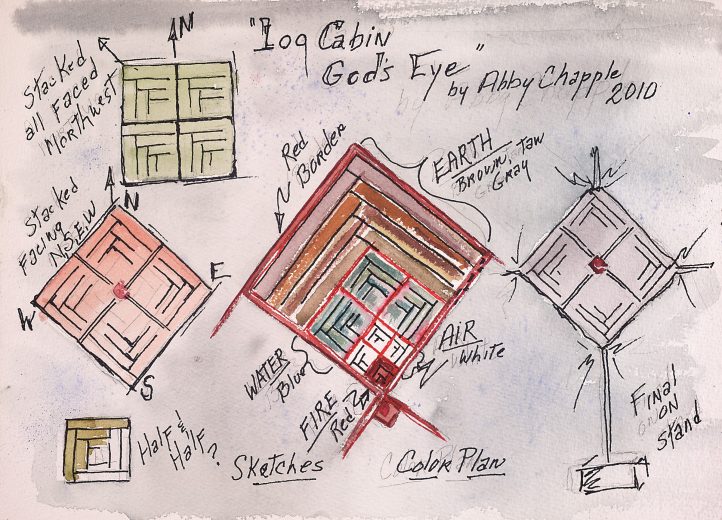 "Log Cabin
God's Eye"
by Abby Chapple
2010
N
Stacked
all Faced
Northwest
Red
Border
EARTH
Brown, Tan
Gray
N
Stacked
Facing
N.S.E.W
E
W
S
WATER
Blue
AIR
White
FIRE
Red
Half &
Half?
Sketches
Color Plan
Final
on
Stand